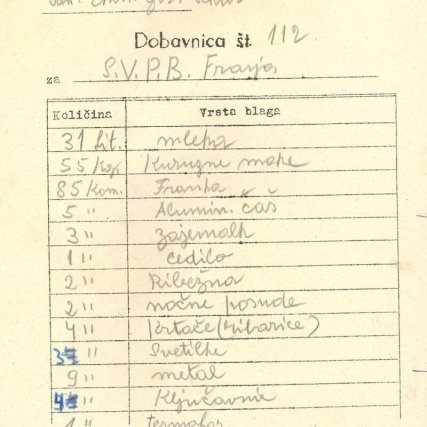 Dobavnica št. 112
za S.V.P.B. Franja
Količina Vrsta blaga
31 Lit. mleka
55 Kg. Kuruzne moke
85 Kom. Franka
5 " Alumin. čaš
3 " zajemalk
1 " cedilo
2 " Ribežna
2 " nočne posude
4 " krtače (ribarice)
" Svetilke
9 " metal
" Ključavnic
1 " termofor